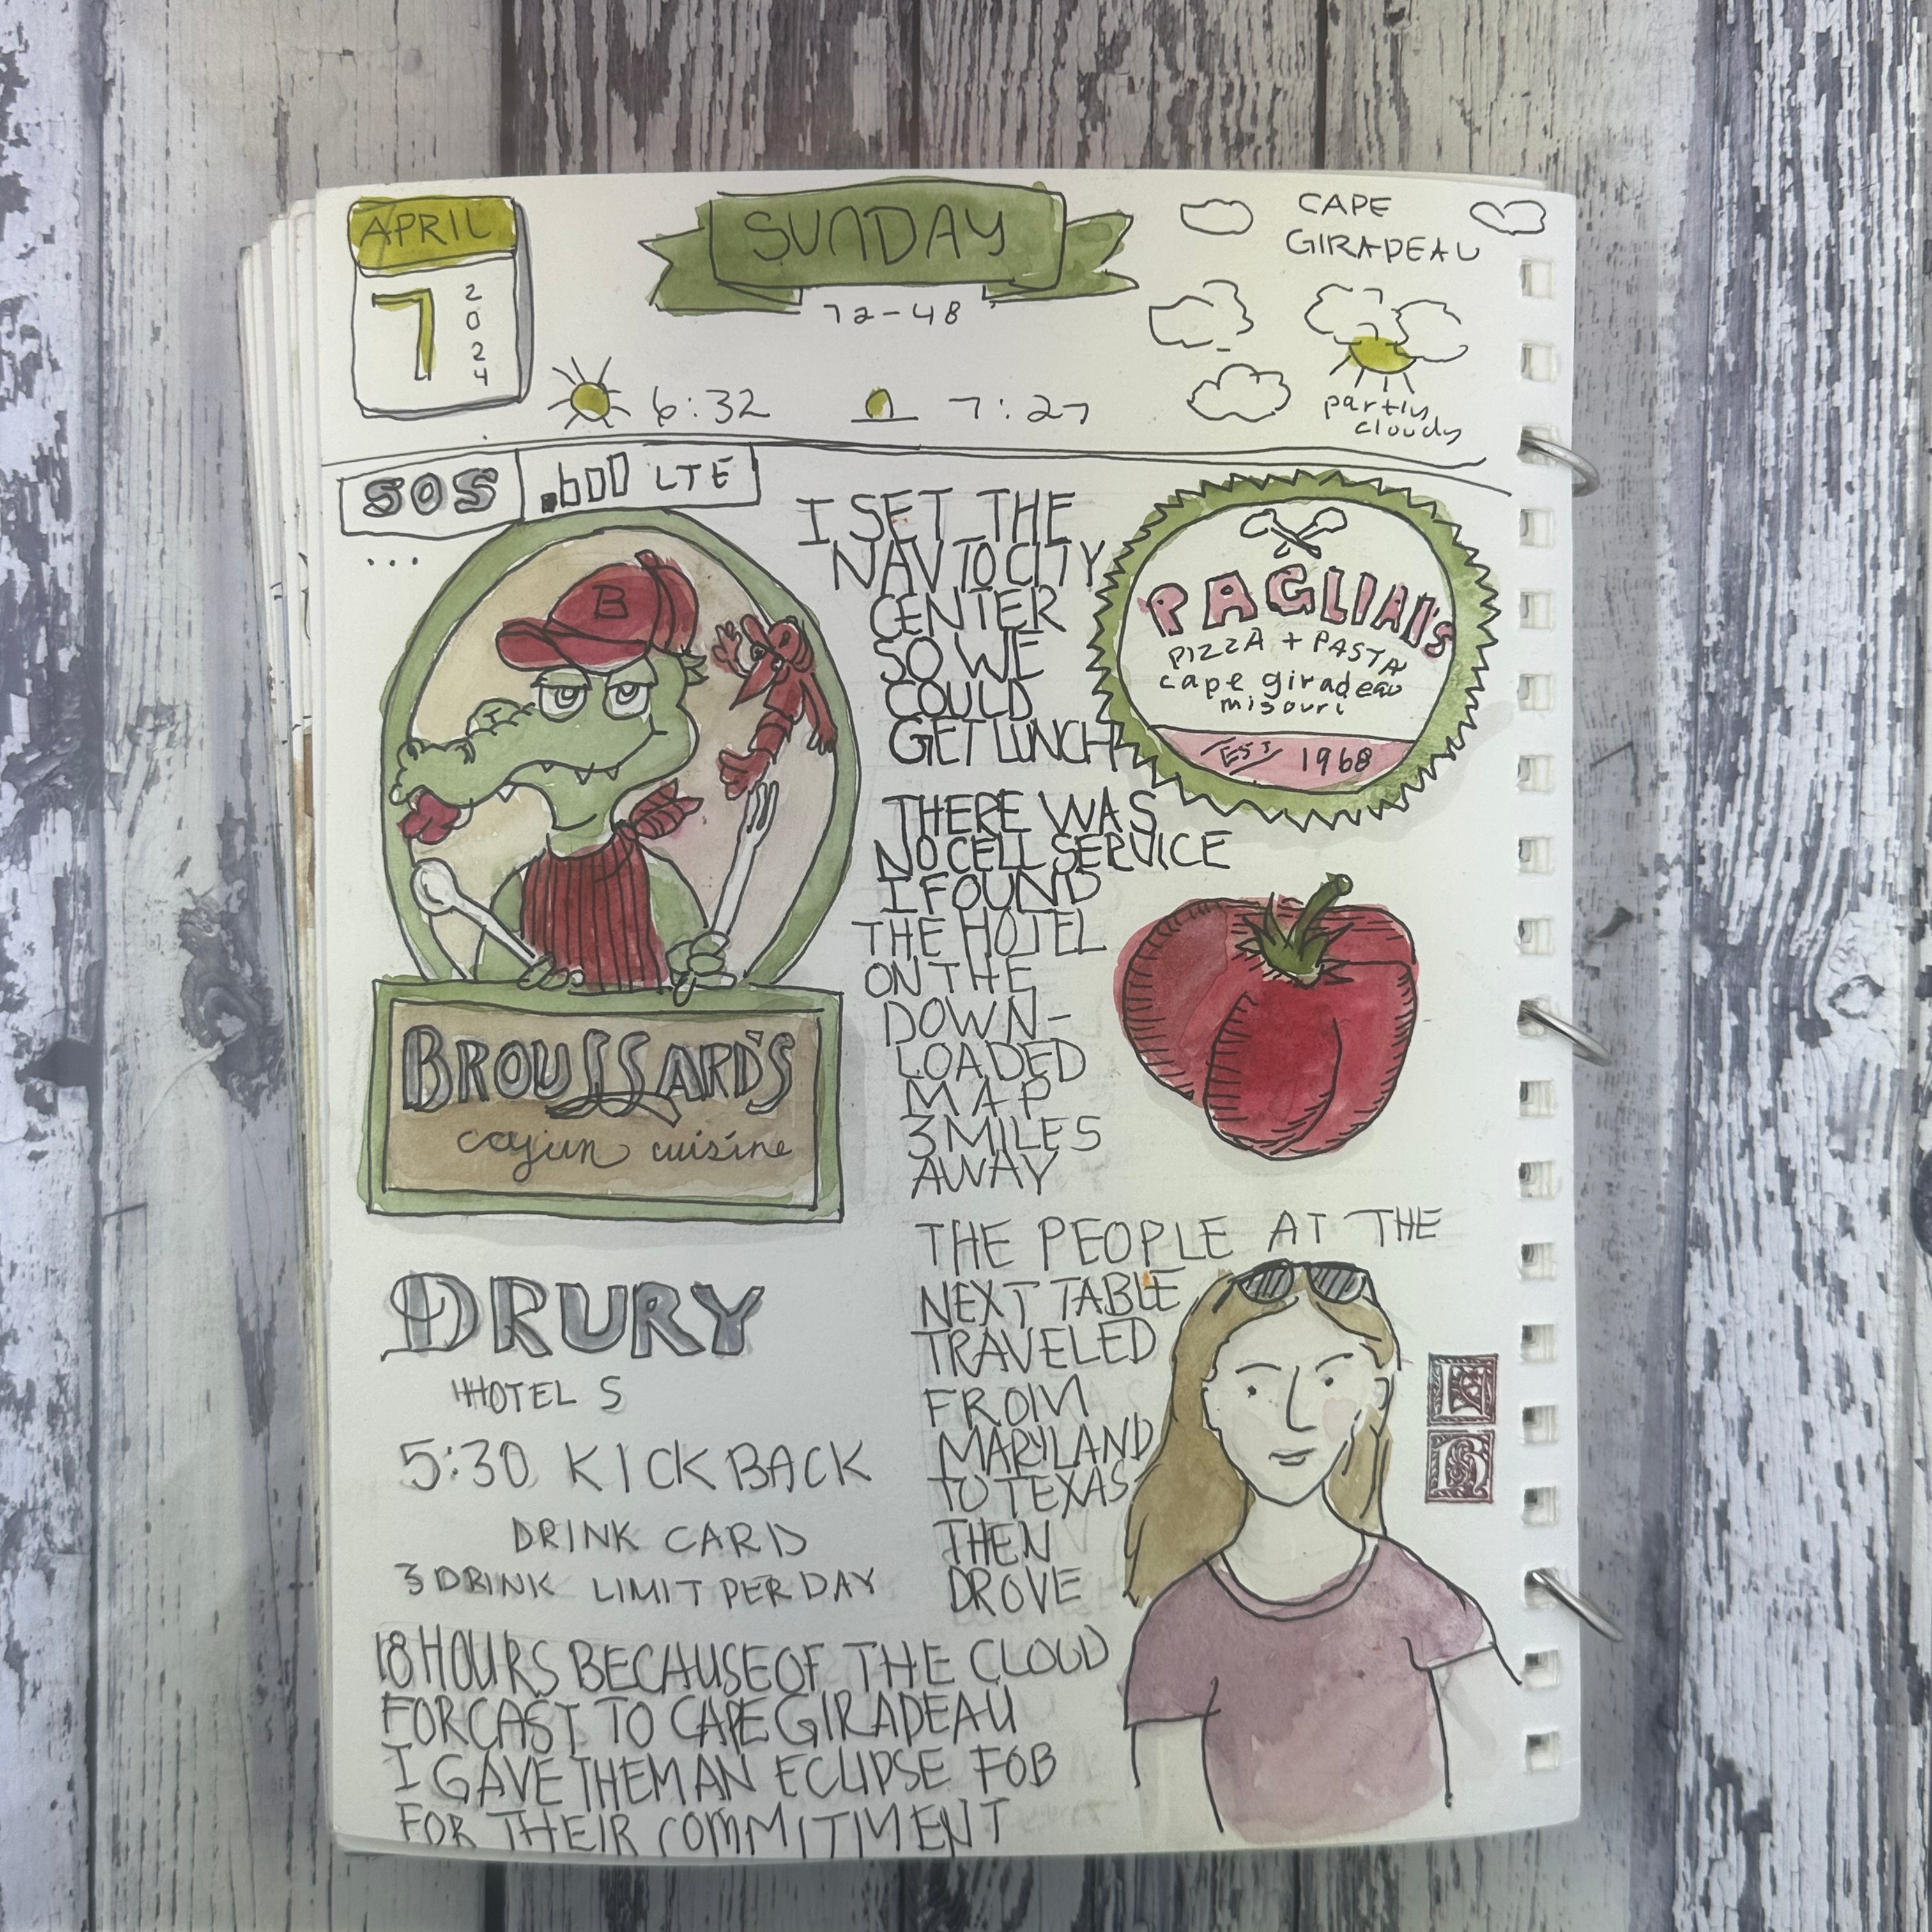 APRIL
7
2024
SUNDAY
72-48
6:32
7:27
CAPE
GIRADEAU
partly
cloudy
SOS
LTE
...
B
BROUSSARD'S
cajun cuisine
I SET THE
NAV TO CITY
CENTER
SO WE
COULD
GET LUNCH
PAGLIAI'S
PIZZA + PASTA
cape giradeau
misouri
EST 1968
THERE WAS
NO CELL SERVICE
I FOUND
THE HOTEL
ON THE
DOWN-
LOADED
MAP
3 MILES
AWAY
DRURY
HHOTELS
5:30 KICKBACK
DRINK CARD
3 DRINK LIMIT PER DAY
THE PEOPLE AT THE
NEXT TABLE
TRAVELED
FROM
MARYLAND
TO TEXAS
THEN
DROVE
18 HOURS BECAUSE OF THE CLOUD
FORCAST TO CAPE GIRADEAU
I GAVE THEM AN ECLIPSE FOB
FOR THEIR COMMITMENT